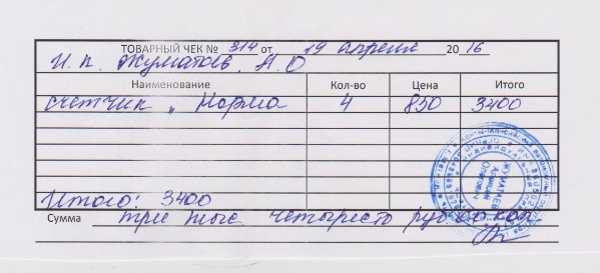 ТОВАРНЫЙ ЧЕК № 314 от 19 апреля 2016
И. п. Жуматаев А.О
Наименование Кол-во Цена Итого
счетчик „ Норма 4 850 3400
Итого: 3400
Сумма три тыс. четыресто руб. 00 коп
ЖУМАТАЕВ